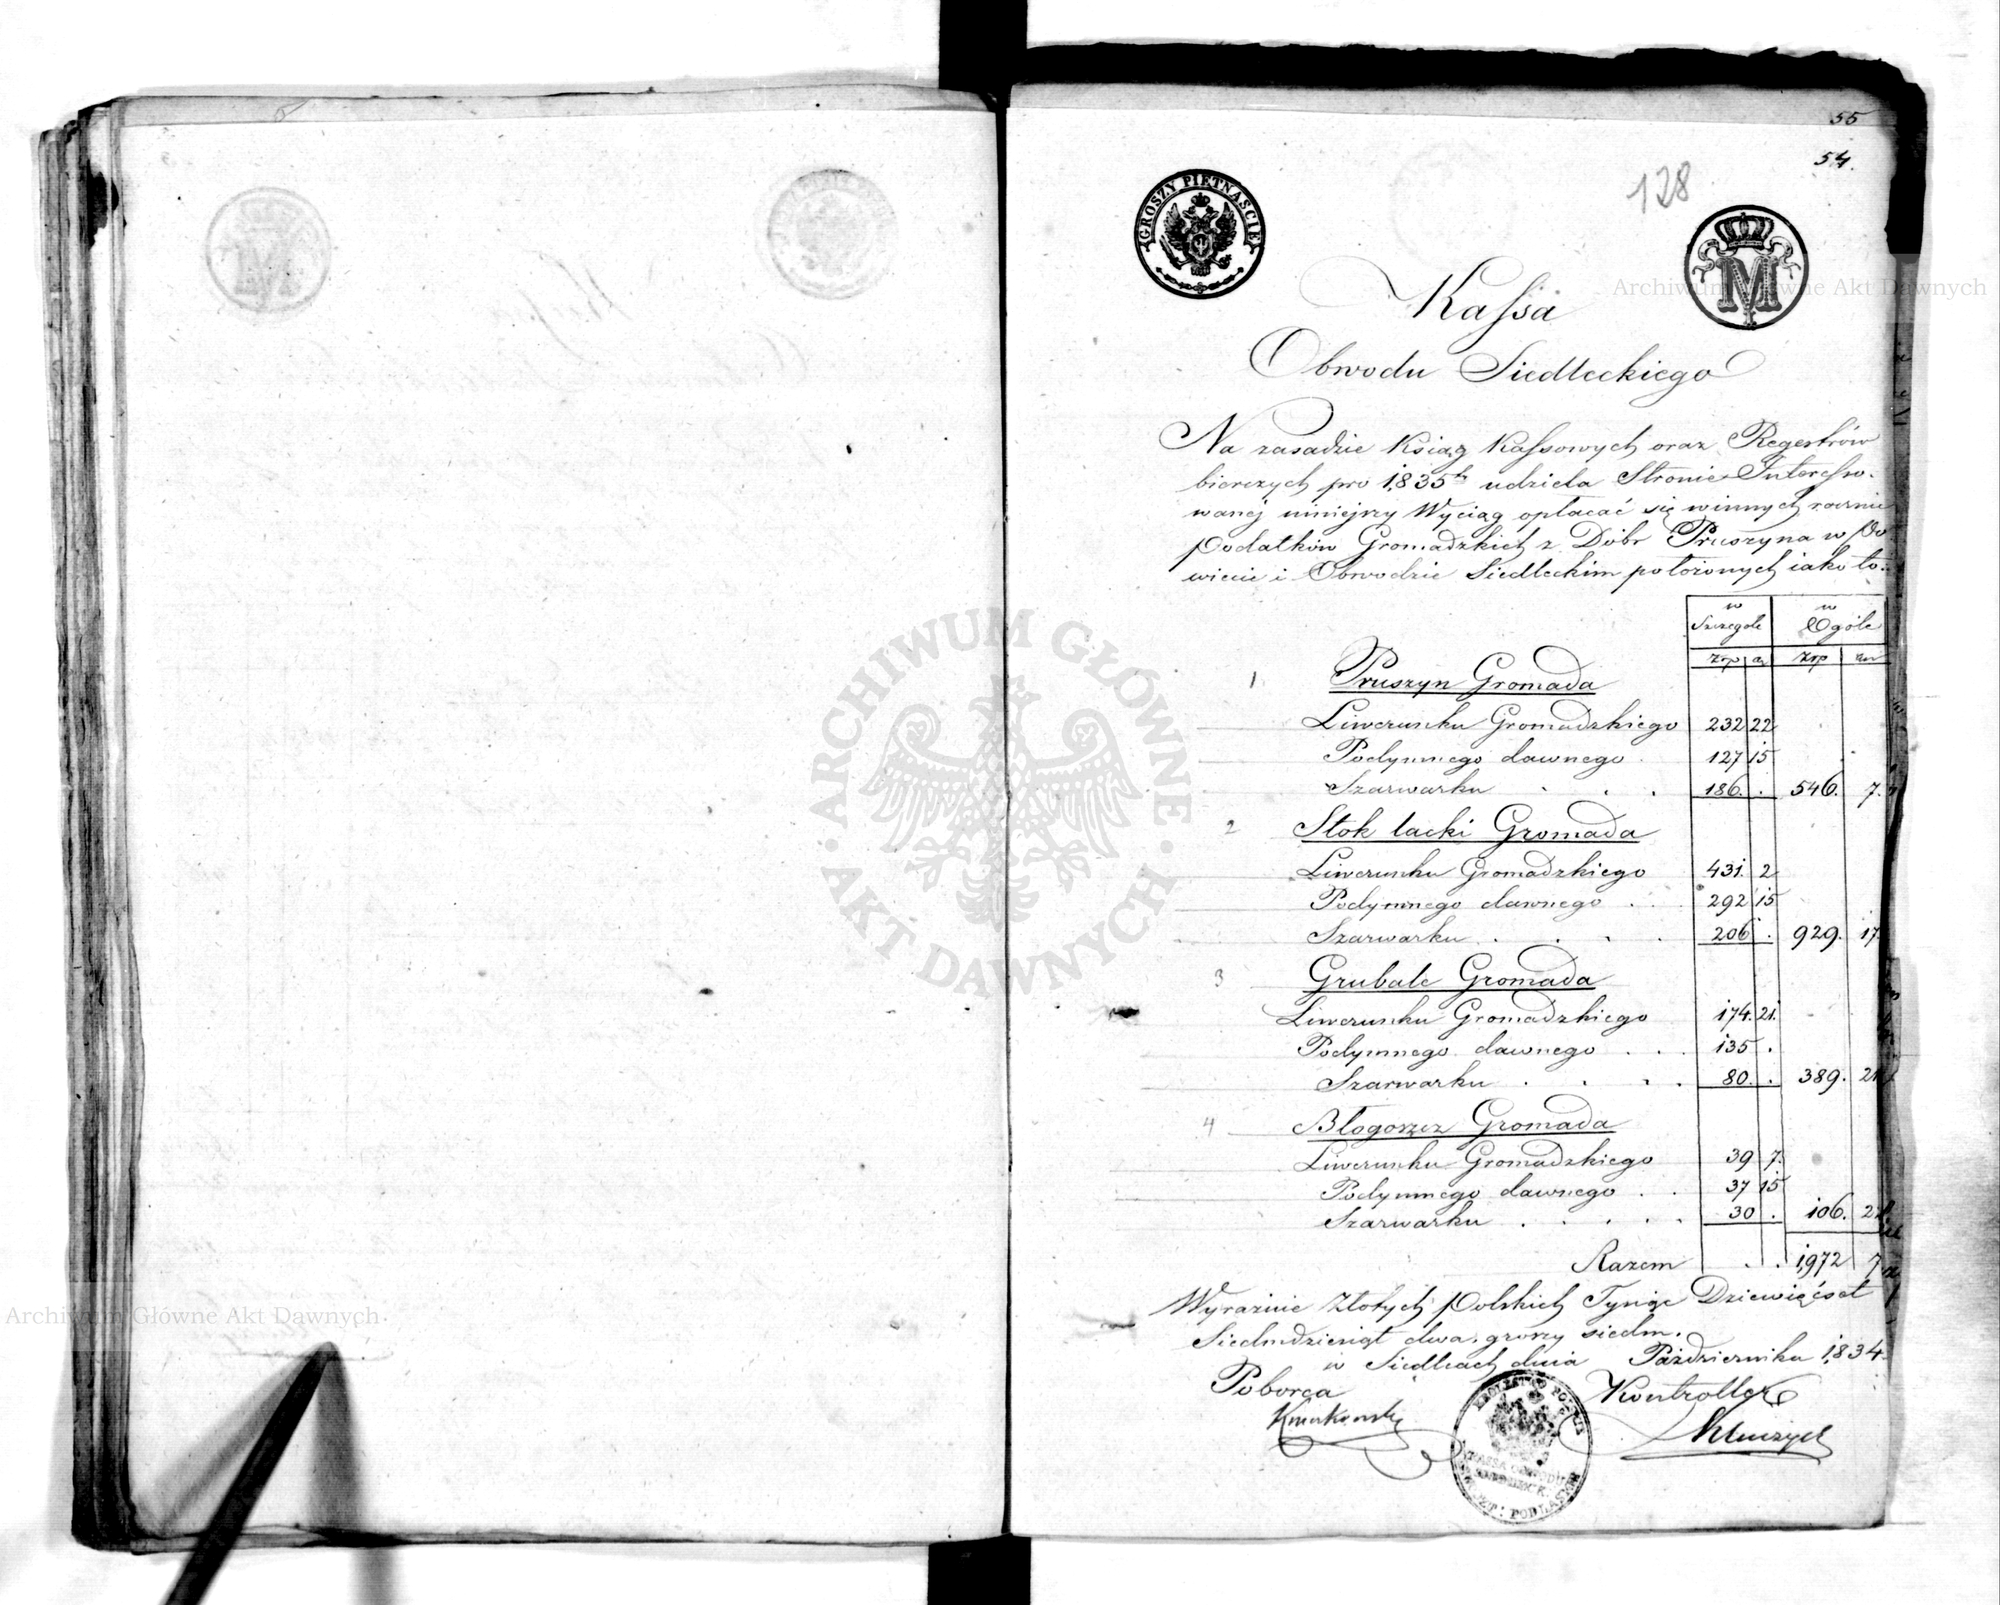 55
54.
128
GROSZY PIĘTNAŚCIE
M
Kassa
Obwodu Siedleckiego
Na zasadzie Ksiąg Kassowych oraz Regestrów
bierczych pro 1835 udziela Stronie Interesso-
wanej niniejszy Wyciąg opłacać się winnych rocznie
podatków Gromadzkich z Dóbr Pruszyna w Po-
wiecie i Obwodzie Siedleckim położonych iako to:
w Szczególe w Ogóle
Złp gr Złp gr
1 Pruszyn Gromada
Liwerunku Gromadzkiego 232 22
Podymnego dawnego 127 15
Szarwarku . . . 186. . 546. 7.
2 Stok lacki Gromada
Liwerunku Gromadzkiego 431. 2
Podymnego dawnego . . 292 15
Szarwarku . . . . 206 . 929. 17.
3 Grubale Gromada
Liwerunku Gromadzkiego 174. 21.
Podymnego dawnego . . . 135 .
Szarwarku . . . . 80. . 389. 21
4 Błogoszcz Gromada
Liwerunku Gromadzkiego 39 7.
Podymnego dawnego . . 37 15
Szarwarku . . . . . 30 . 106. 22
Razem . . 1,972 7
Wyraźnie Złotych Polskich Tysiąc Dziewięćset
Siedmdziesiąt dwa, groszy siedm.
w Siedlcach dnia Październiku 1,834.
Poborca Kontroller
Kwiatkowski
KRÓLESTWO POLSKIE
KASSA OBWODU
PODLASKIE
ARCHIWUM GŁÓWNE AKT DAWNYCH
Archiwum Główne Akt Dawnych
Archiwum Główne Akt Dawnych